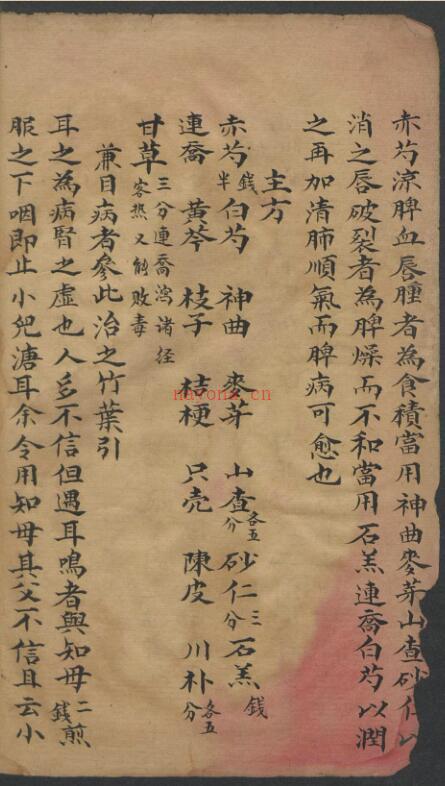 赤芍涼脾血唇腫者為食積當用神曲麥芽山查砂仁以
消之唇破裂者為脾燥而不和當用石羔連喬白芍以潤
之再加清肺順氣而脾病可愈也
主方
赤芍錢半白芍 神曲 麥芽 山查各五分砂仁三分石羔錢
連喬 黃芩 枝子 桔梗 只壳 陳皮 川朴各五分
甘草三分連喬瀉诸径客热又能敗毒
兼目病者參此治之竹葉引
耳之為病腎之虛也人多不信但遇耳鳴者與知母二錢煎
服之下咽即止小兒溏耳余令用知母其父不信且云小
nayona.cn